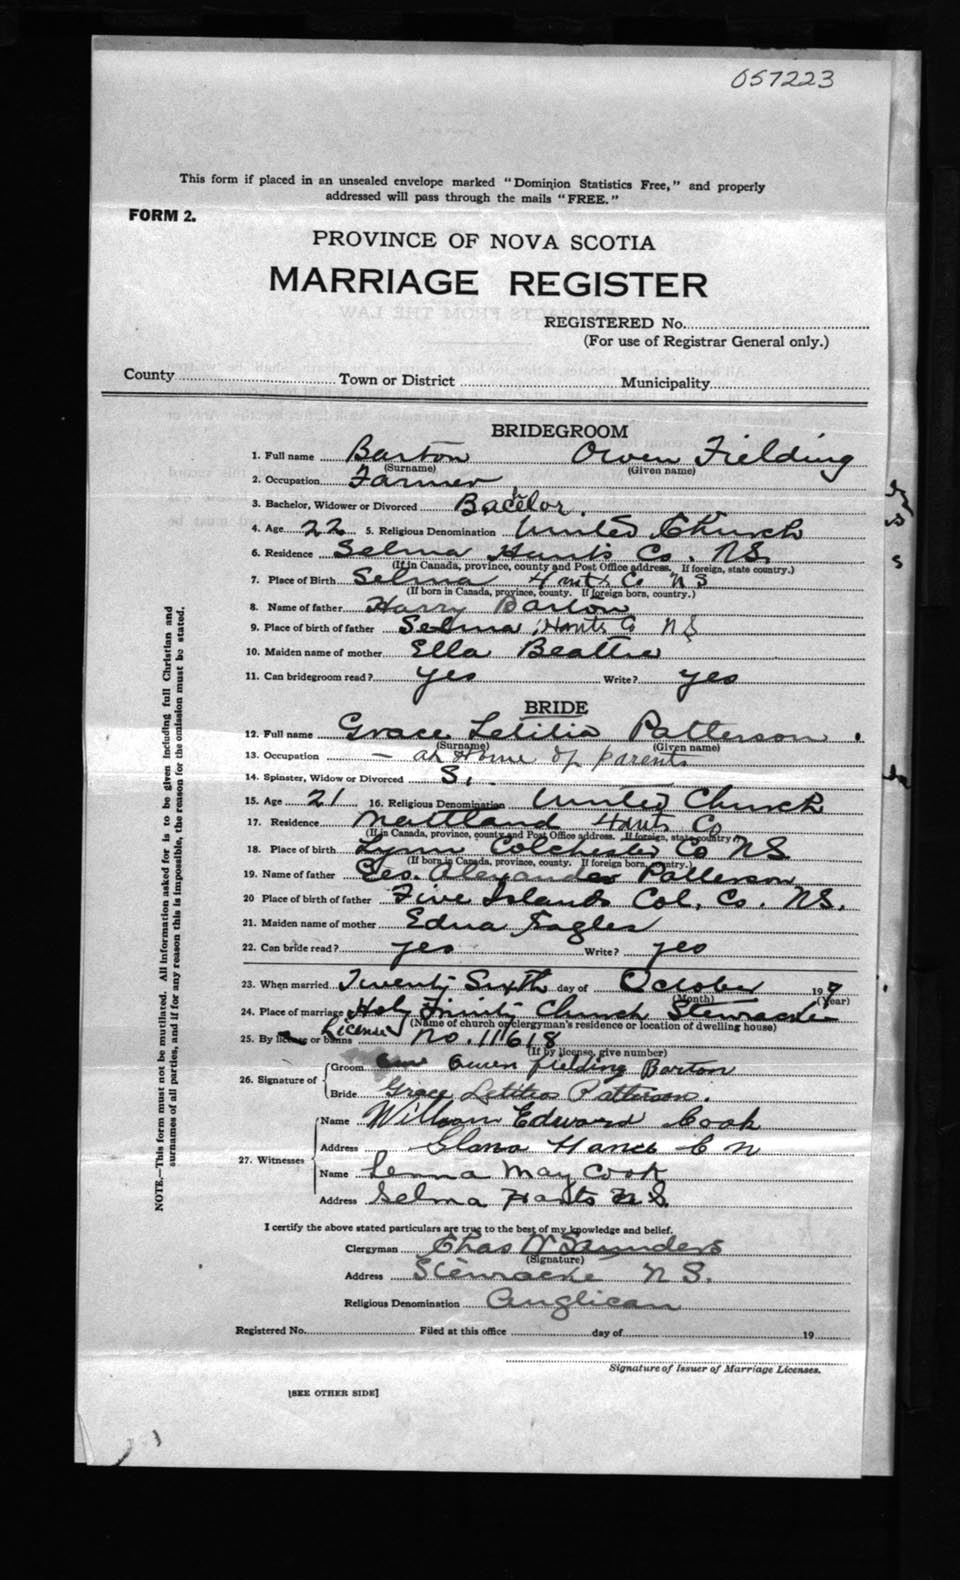 057223
This form if placed in an unsealed envelope marked "Dominion Statistics Free," and properly
addressed will pass through the mails "FREE."
FORM 2.
PROVINCE OF NOVA SCOTIA
MARRIAGE REGISTER
REGISTERED No.
(For use of Registrar General only.)
County Town or District Municipality
BRIDEGROOM
1. Full name Barton Owen Fielding
(Surname) (Given name)
2. Occupation Farmer
3. Bachelor, Widower or Divorced Bachelor.
4. Age 22 5. Religious Denomination United Church
6. Residence Selma Hants Co. NS.
(If in Canada, province, county and Post Office address. If foreign, state country.)
7. Place of Birth Selma Hants Co NS
(If born in Canada, province, county. If foreign born, country.)
8. Name of father Harry Barton
9. Place of birth of father Selma, Hants Co NS
10. Maiden name of mother Ella Beattie
11. Can bridegroom read? yes Write? yes
BRIDE
12. Full name Grace Letitia Patterson.
(Surname) (Given name)
13. Occupation — at Home of parents
14. Spinster, Widow or Divorced S.
15. Age 21 16. Religious Denomination United Church
17. Residence Maitland Hants Co
(If in Canada, province, county and Post Office address. If foreign, state country.)
18. Place of birth Lynn Colchester Co NS
(If born in Canada, province, county. If foreign born, country.)
19. Name of father Geo. Alexander Patterson
20 Place of birth of father Five Islands Col. Co. NS.
21. Maiden name of mother Edna Fagles
22. Can bride read? yes Write? yes
23. When married Twenty Sixth day of October 19
(Month) (Year)
24. Place of marriage Holy Trinity Church Stewiacke
(Name of church or clergyman's residence or location of dwelling house)
25. By license or banns License No. 11618
(If by license, give number)
26. Signature of
Groom Owen Fielding Barton
Bride Grace Letitia Patterson.
27. Witnesses
Name William Edward Cook
Address Hants
Name Lenna May Cook
Address Selma Hants N.S.
I certify the above stated particulars are true to the best of my knowledge and belief.
Clergyman Chas W Saunders
(Signature)
Address Stewiacke N.S.
Religious Denomination Anglican
Registered No. Filed at this office day of 19
Signature of Issuer of Marriage Licenses.
[SEE OTHER SIDE]
NOTE.—This form must not be mutilated. All information asked for is to be given including full Christian and
surnames of all parties, and if for any reason this is impossible, the reason for the omission must be stated.